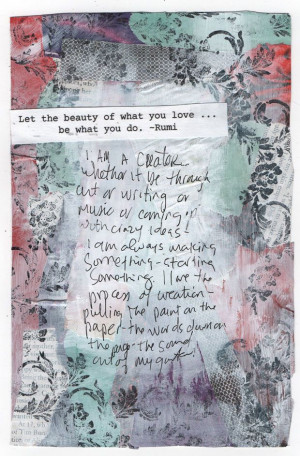 Let the beauty of what you love ...
be what you do. ~Rumi
I AM A Creator.
Whether it be through
art or writing or
music or coming up
with crazy ideas-
I am always making
something - starting
something. I love the
process of creation-
pulling the paint on the
paper - the words down on
the page - the sound
out of my guitar.